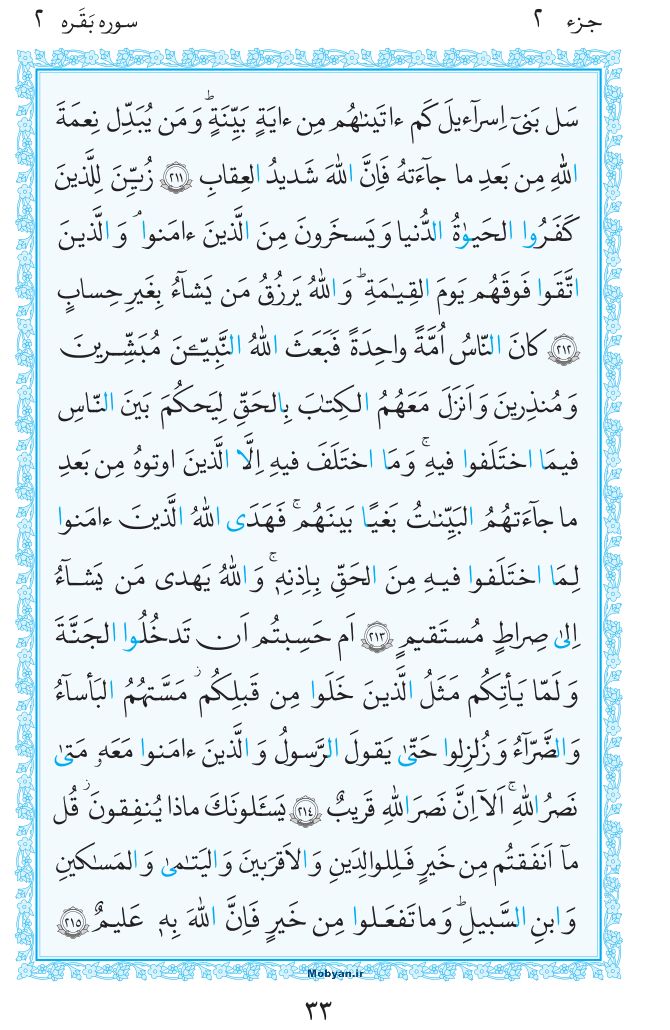 جزء ٢
سوره بَقَره ٢
سَل بَنىٓ اِسرآءيلَ كَم ءاتَينٰهُم مِن ءايَةٍ بَيِّنَةٍ ۗ وَ مَن يُبَدِّل نِعمَةَ
اللّٰهِ مِن بَعدِ ما جآءَتهُ فَاِنَّ اللّٰهَ شَديدُ العِقابِ ﴿٢١١﴾ زُيِّنَ لِلَّذينَ
كَفَرُوا الحَيوٰةُ الدُّنيا وَ يَسخَرونَ مِنَ الَّذينَ ءامَنوا ۘ وَ الَّذينَ
اتَّقَوا فَوقَهُم يَومَ القِيٰمَةِ ۗ وَ اللّٰهُ يَرزُقُ مَن يَشآءُ بِغَيرِ حِسابٍ
﴿٢١٢﴾ كانَ النّاسُ اُمَّةً واحِدَةً فَبَعَثَ اللّٰهُ النَّبِيّـٖنَ مُبَشِّرينَ
وَ مُنذِرينَ وَ اَنزَلَ مَعَهُمُ الكِتٰبَ بِالحَقِّ لِيَحكُمَ بَينَ النّاسِ
فيمَا اختَلَفوا فيهِ ۚ وَ مَا اختَلَفَ فيهِ اِلَّا الَّذينَ اوتوهُ مِن بَعدِ
ما جآءَتهُمُ البَيِّنٰتُ بَغيًا بَينَهُم ۚ فَهَدَى اللّٰهُ الَّذينَ ءامَنوا
لِمَا اختَلَفوا فيهِ مِنَ الحَقِّ بِاِذنِهٖ ۚ وَ اللّٰهُ يَهدى مَن يَشآءُ
اِلىٰ صِراطٍ مُستَقيمٍ ﴿٢١٣﴾ اَم حَسِبتُم اَن تَدخُلُوا الجَنَّةَ
وَ لَمّا يَأتِكُم مَثَلُ الَّذينَ خَلَوا مِن قَبلِكُم ۖ مَسَّتهُمُ البَأسآءُ
وَ الضَّرّآءُ وَ زُلزِلوا حَتّىٰ يَقولَ الرَّسولُ وَ الَّذينَ ءامَنوا مَعَهٗ مَتىٰ
نَصرُ اللّٰهِ ۚ اَلآ اِنَّ نَصرَ اللّٰهِ قَريبٌ ﴿٢١٤﴾ يَسـَٔلونَكَ ماذا يُنفِقونَ ۖ قُل
مآ اَنفَقتُم مِن خَيرٍ فَلِلوالِدَينِ وَ الاَقرَبينَ وَ اليَتٰمىٰ وَ المَسٰكينِ
وَ ابنِ السَّبيلِ ۗ وَ ما تَفعَلوا مِن خَيرٍ فَاِنَّ اللّٰهَ بِهٖ عَليمٌ ﴿٢١٥﴾
Mobyan.ir
٣٣